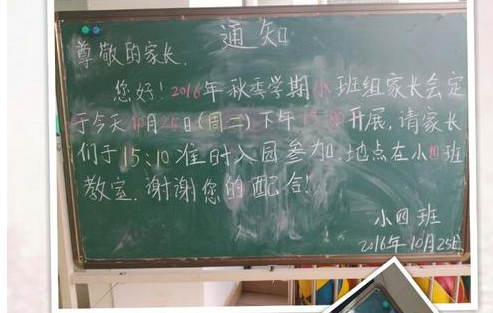 通知
尊敬的家长.
您好!2016年秋季学期小班组家长会定
于今天10月25日(周二)下午15:10开展,请家长
们于15:10准时入园参加.地点在小四班
教室.谢谢您的配合!
小四班
2016年10月25日